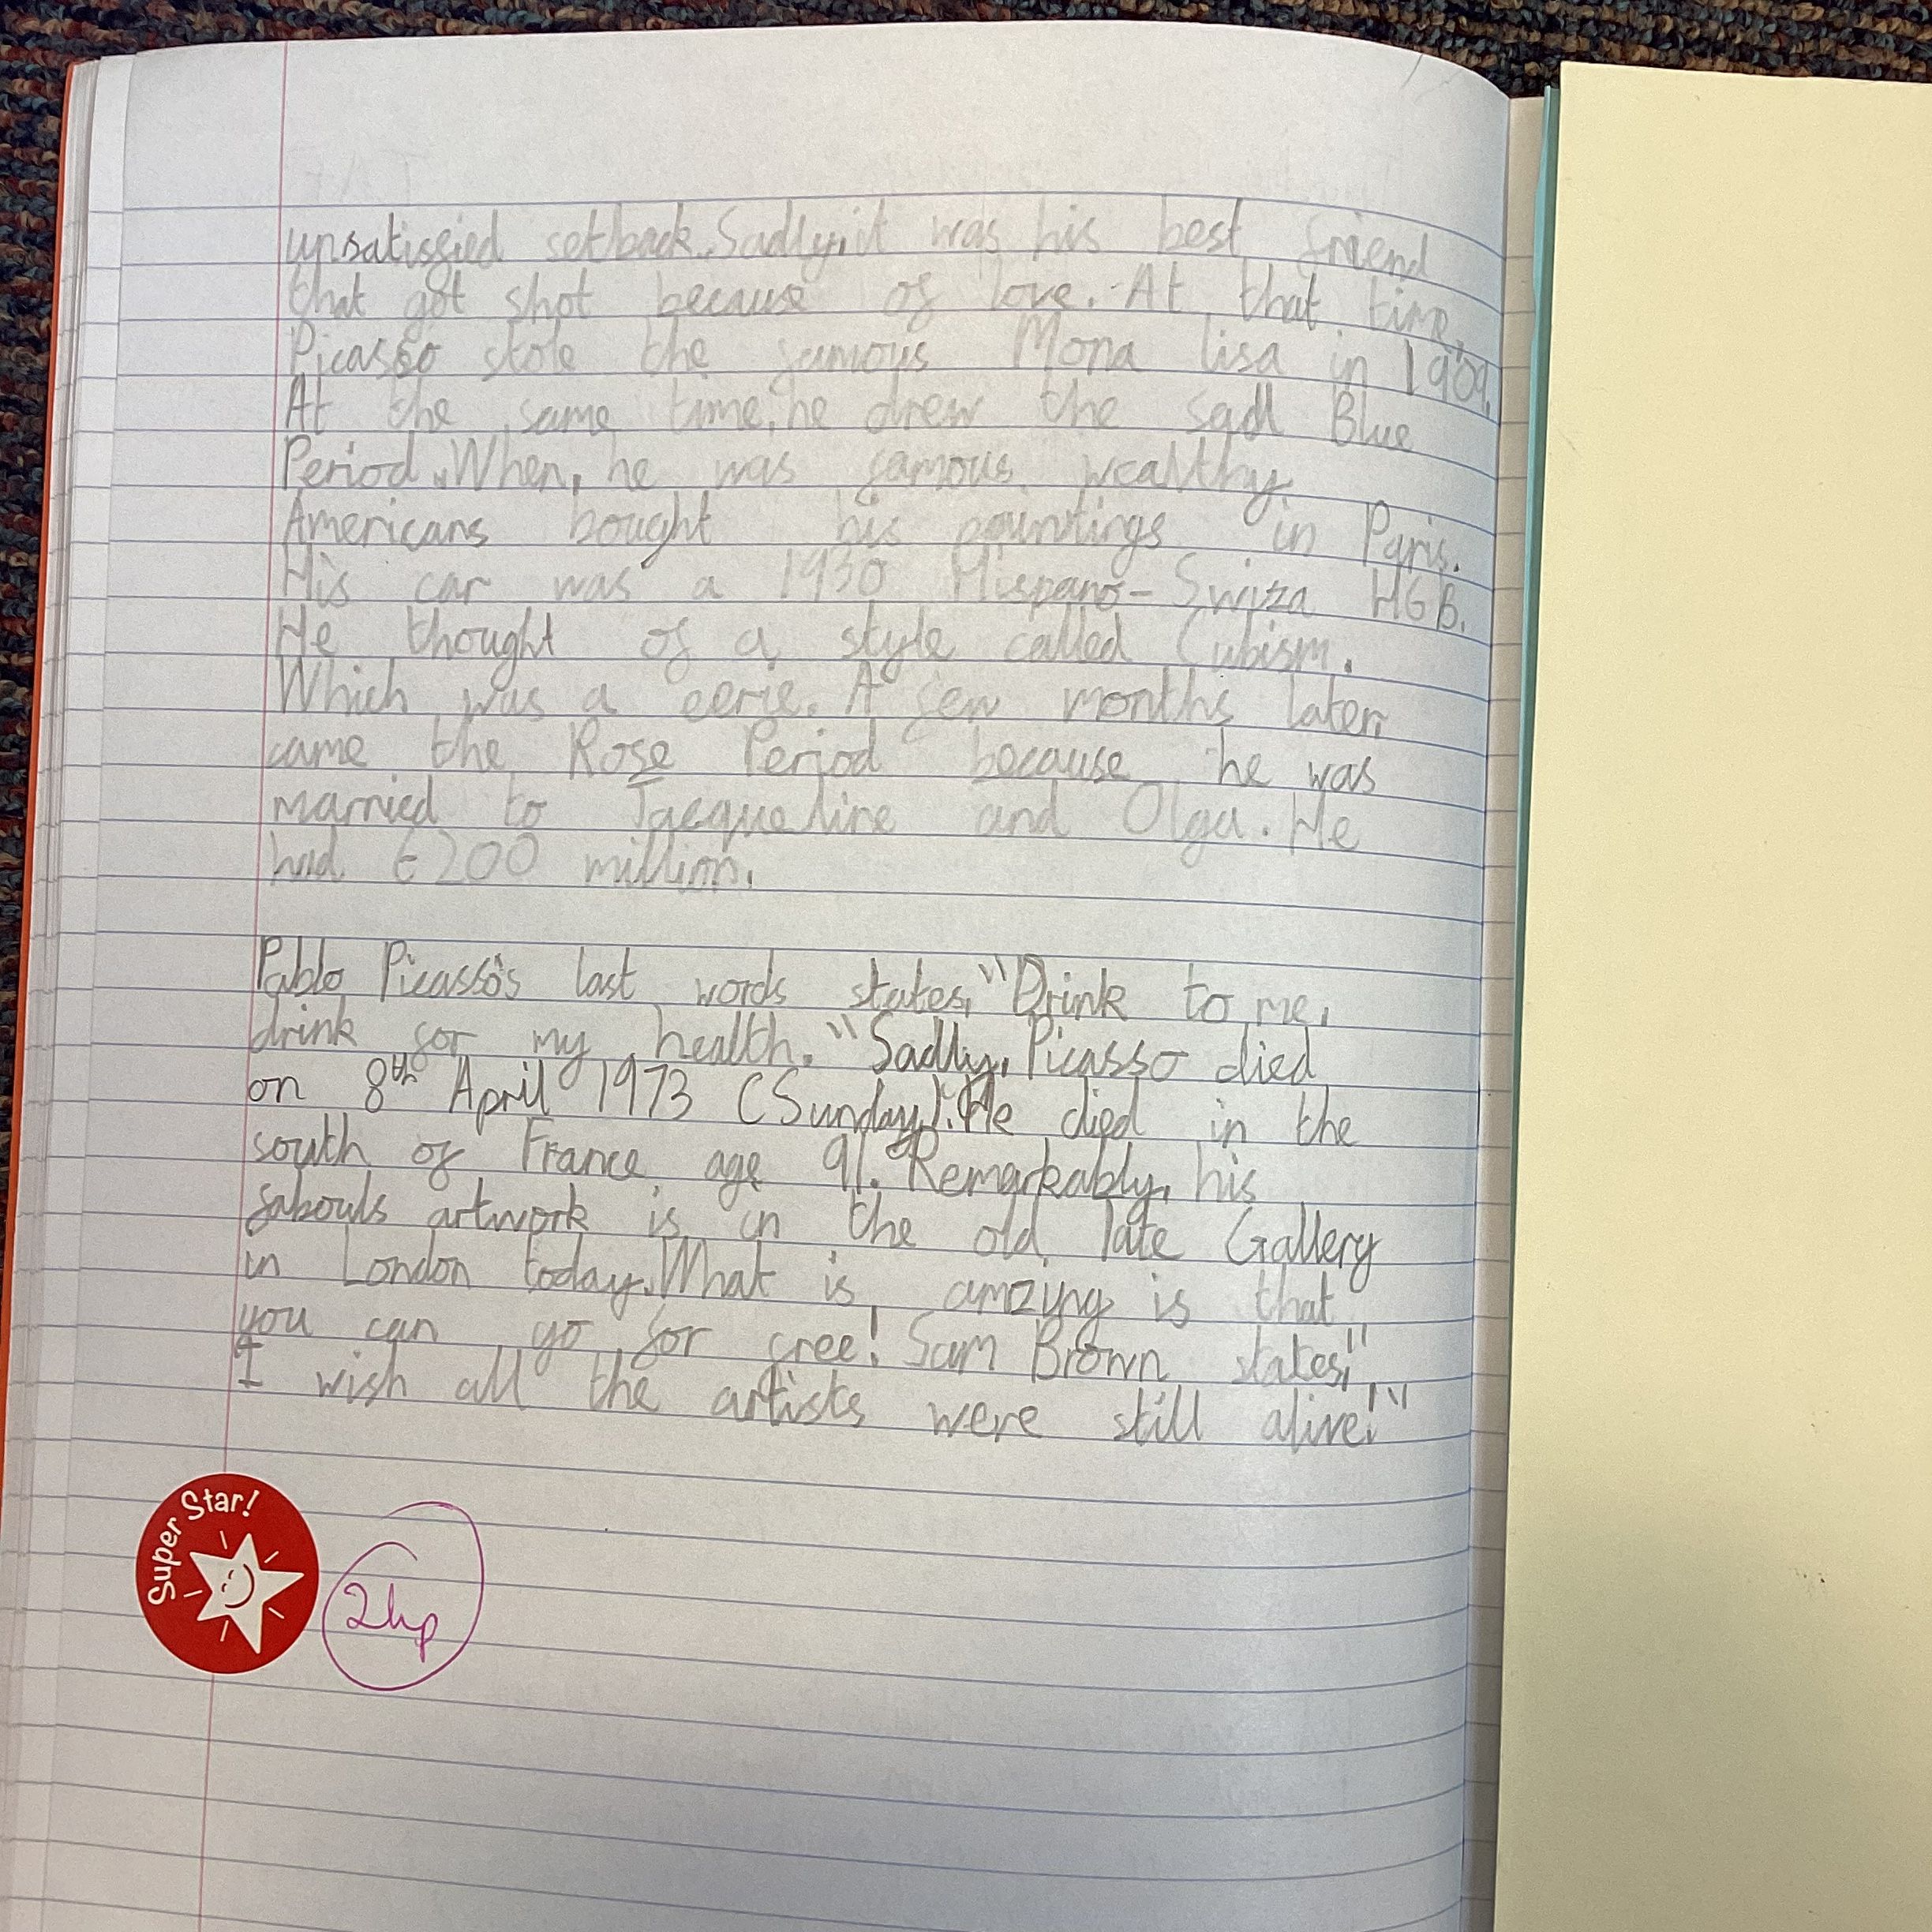 unsatisfied setback. Sadly, it was his best friend
that got shot because of love. At that time,
Picasso stole the famous Mona lisa in 1909.
At the same time, he drew the sad Blue
Period. When, he was famous wealthy
Americans bought his paintings in Paris.
His car was a 1930 Hispano-Swiza H6B.
He thought of a style called Cubism.
Which was a eerie. A few months later,
came the Rose Period because he was
married to Jacqueline and Olga. He
had £200 million.
Pablo Picasso's last words states, "Drink to me,
drink for my health." Sadly, Picasso died
on 8th April 1973 (Sunday). He died in the
south of France age 91. Remarkably, his
fabouls artwork is in the old Tate Gallery
in London today. What is amzing is that
you can go for free! Sam Brown states, "
I wish all the artists were still alive!"
Super Star!
2hp